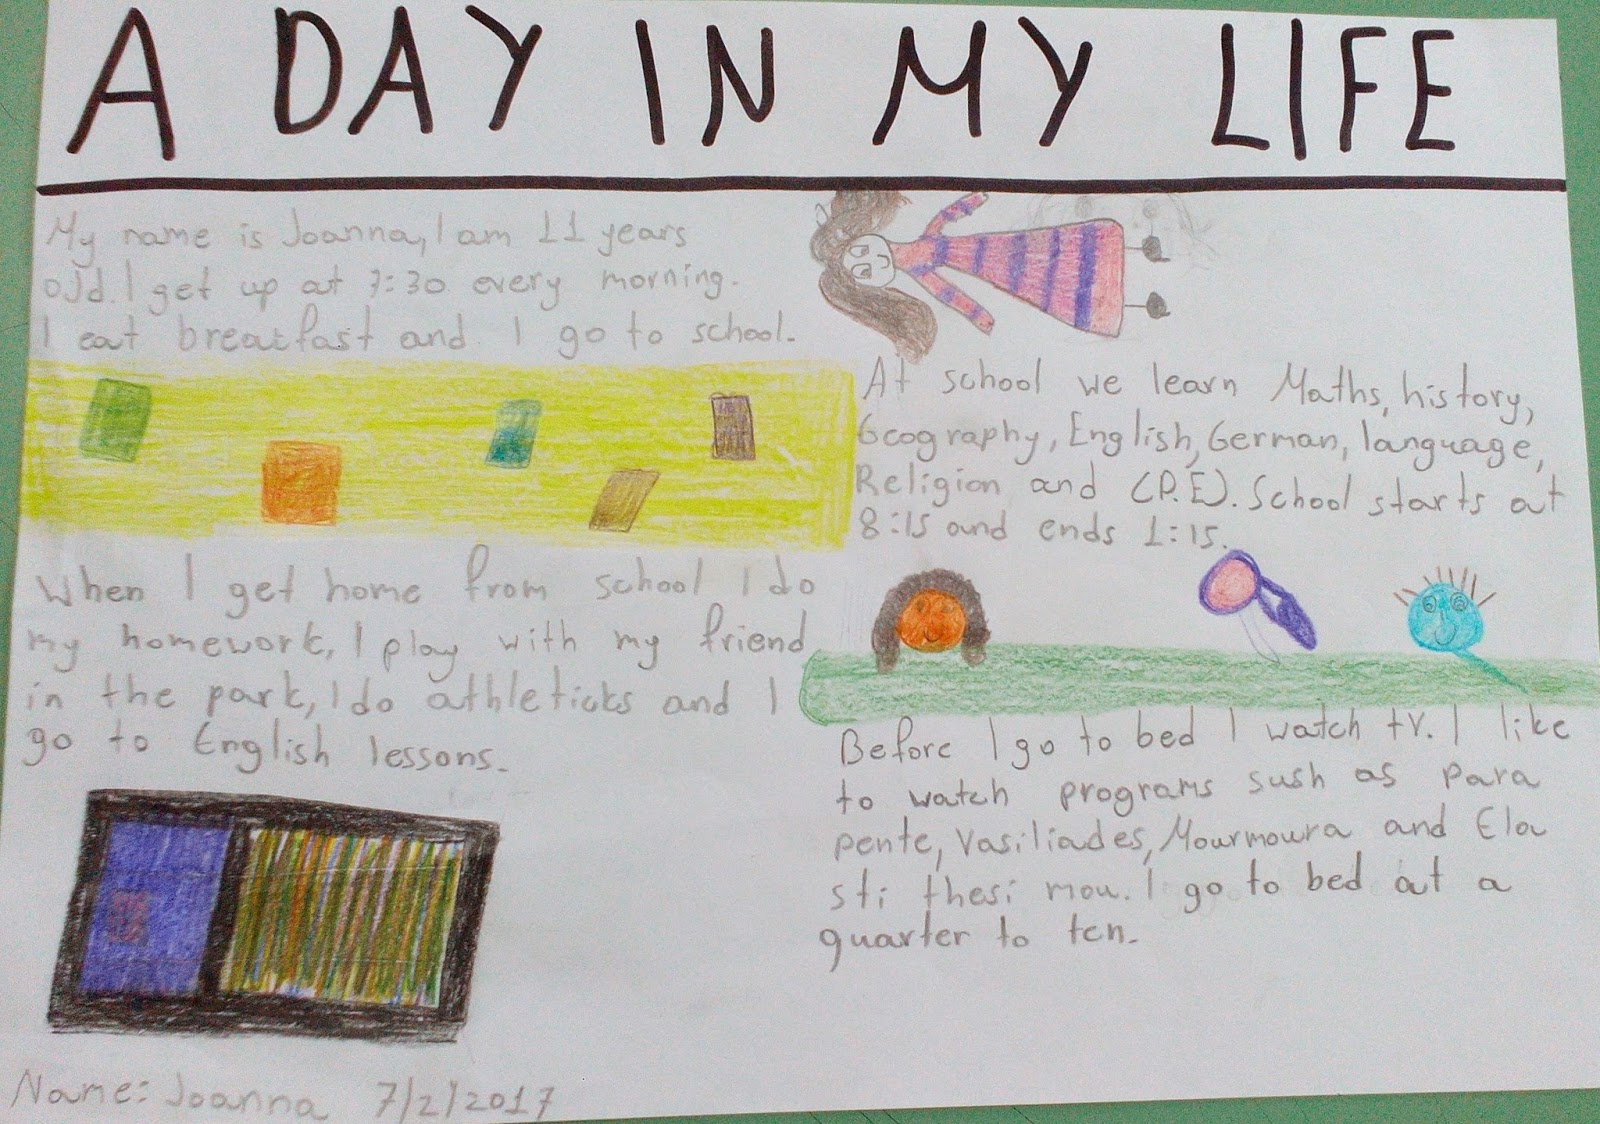 A DAY IN MY LIFE
My name is Joanna, I am 11 years
old. I get up at 7:30 every morning.
I eat breakfast and I go to school.
At school we learn Maths, history,
Geography, English, German, language,
Religion and (P.E). School starts at
8:15 and ends 1:15.
When I get home from school I do
my homework, I play with my friend
in the park, I do athleticks and I
go to English lessons.
Before I go to bed I watch tv. I like
to watch programs sush as Para
pente, Vasiliades, Mourmoura and Ela
sti thesi mou. I go to bed at a
quarter to ten.
Name: Joanna 7/2/2017